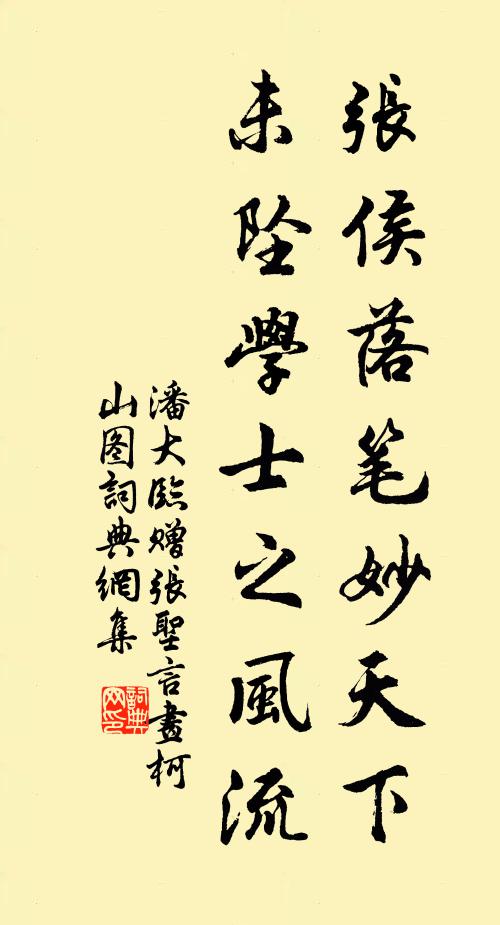 張侯落笔妙天下
未坠學士之風流
潘大臨赠張聖言畫柯
山图詞典網集
詞典网印